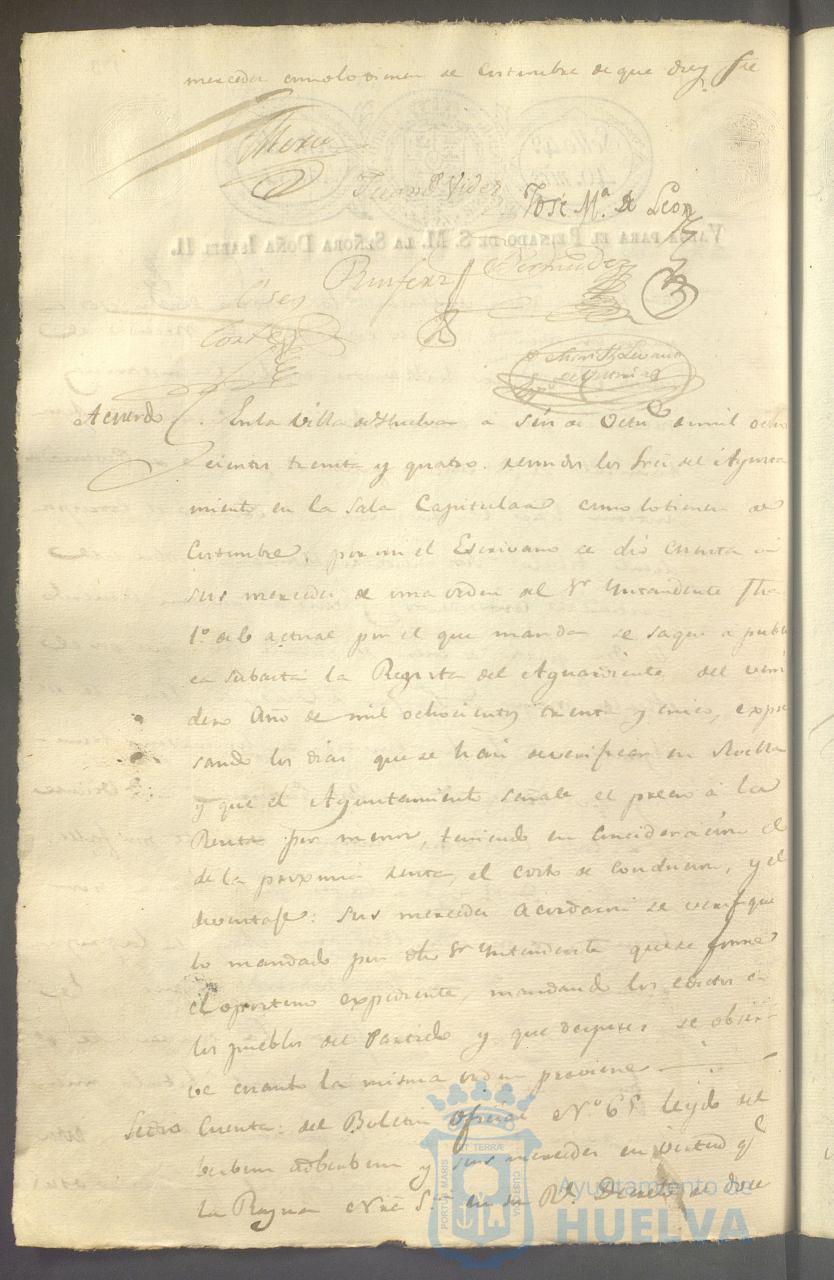 mercedes como lo tienen de Costumbre de que doy fee
Moro
Juan Videz
José M.ª de Leon
Valga para el Reinado de S. M. la Señora Doña Isabel II.
Bermudez
Cortes
Acuerdo En la Villa de Huelva a seis de Octu.e de mil ocho
cientos treinta y quatro. reunidos los Sres del Ayunta
miento en la Sala Capitular como lo tienen de
Costumbre, por mi el Escrivano se dió cuenta á
sus mercedes de una orden del Sr Yntendente fha
1.º del actual por el que manda se saque a publi
ca subasta la Renta del Aguardiente del veni
dero Año de mil ochocientos treinta y cinco, expre
sando los dias que se han de verificar en Sevilla
y que el Ayuntamiento señale el precio á la
Renta por menor, teniendo en Concideracion el
de la proxima renta, el costo de conducion, y el
: sus mercedes acordaron se verifique
lo mandado por dho Sr Yntendente que se forme
el oportuno expediente, mandando los edictos á
los pueblos del Partido y que despues se obser-
ve cuanto la misma orden previene
Se dio Cuenta: del Boletin Oficial Nº 65 leydo del
berbum adberbum y sus mercedes en virtud qe
la Reyna Nrã Sra en su Rl Decreto de doce
PORTUS MARIS
ET TERRÆ
CUSTODIA
Ayuntamiento de
HUELVA